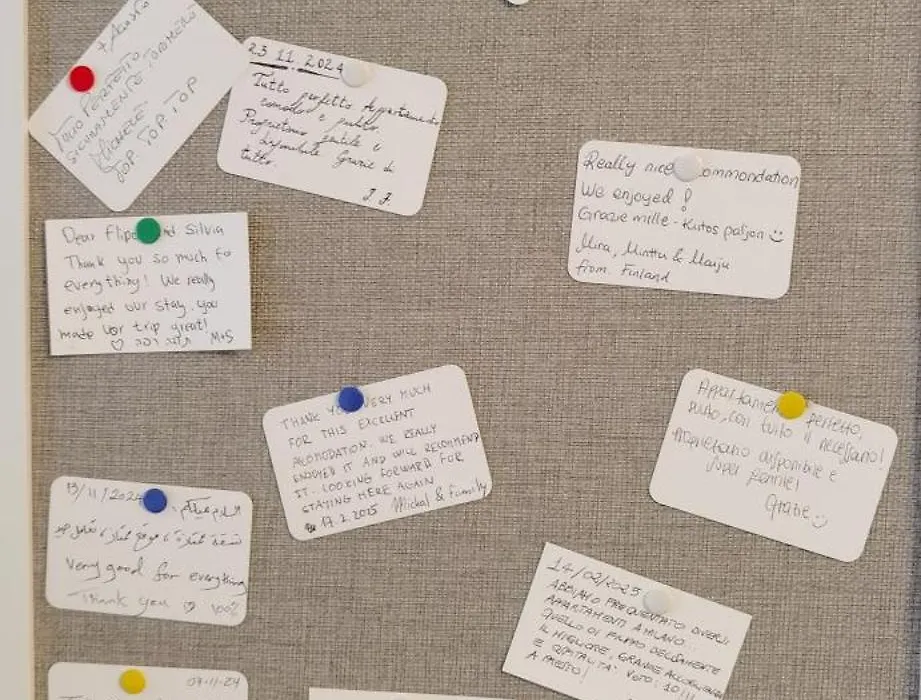 TUTTO PERFETTO
SICURAMENTE TORNERÒ
TOP TOP TOP
23 11 2024
Tutto perfetto Appartamento
comodo e pulito.
Proprietario gentile e
disponibile Grazie di
tutto.
J.J.
Really nice ommondation
We enjoyed!
Grazie mille - Kiitos paljon
Mira, Minttu & Maija
from Finland
Dear nd Silvia
Thank you so much for
everything! We really
enjoyed our stay. you
made our trip great!
תודה רבה M+S
THANK YOU VERY MUCH
FOR THIS EXCELLENT
ACOMODATION. WE REALLY
ENJOYED IT AND WILL RECOMMEND
IT. LOOKING FORWARD FOR
STAYING HERE AGAIN
17.2.2025 Michal & Family
Appartamento perfetto,
pulito, con tutto il necessario!
Proprietario disponibile e
Super
Grazie
13/11/2024 السلام عليكم
شقة ممتازة
Very good for everything
Thank you ♡ 100%
14/02/2025
ABBIAMO FREQUENTATO DIVERSI
APPARTAMENTI A MILANO...
QUELLO DI FILIPPO DECISAMENTE
IL MIGLIORE, GRANDE ACCOGLIENZA
E OSPITALITÀ. VOTO: 10!!!
A PRESTO!
07-11-24